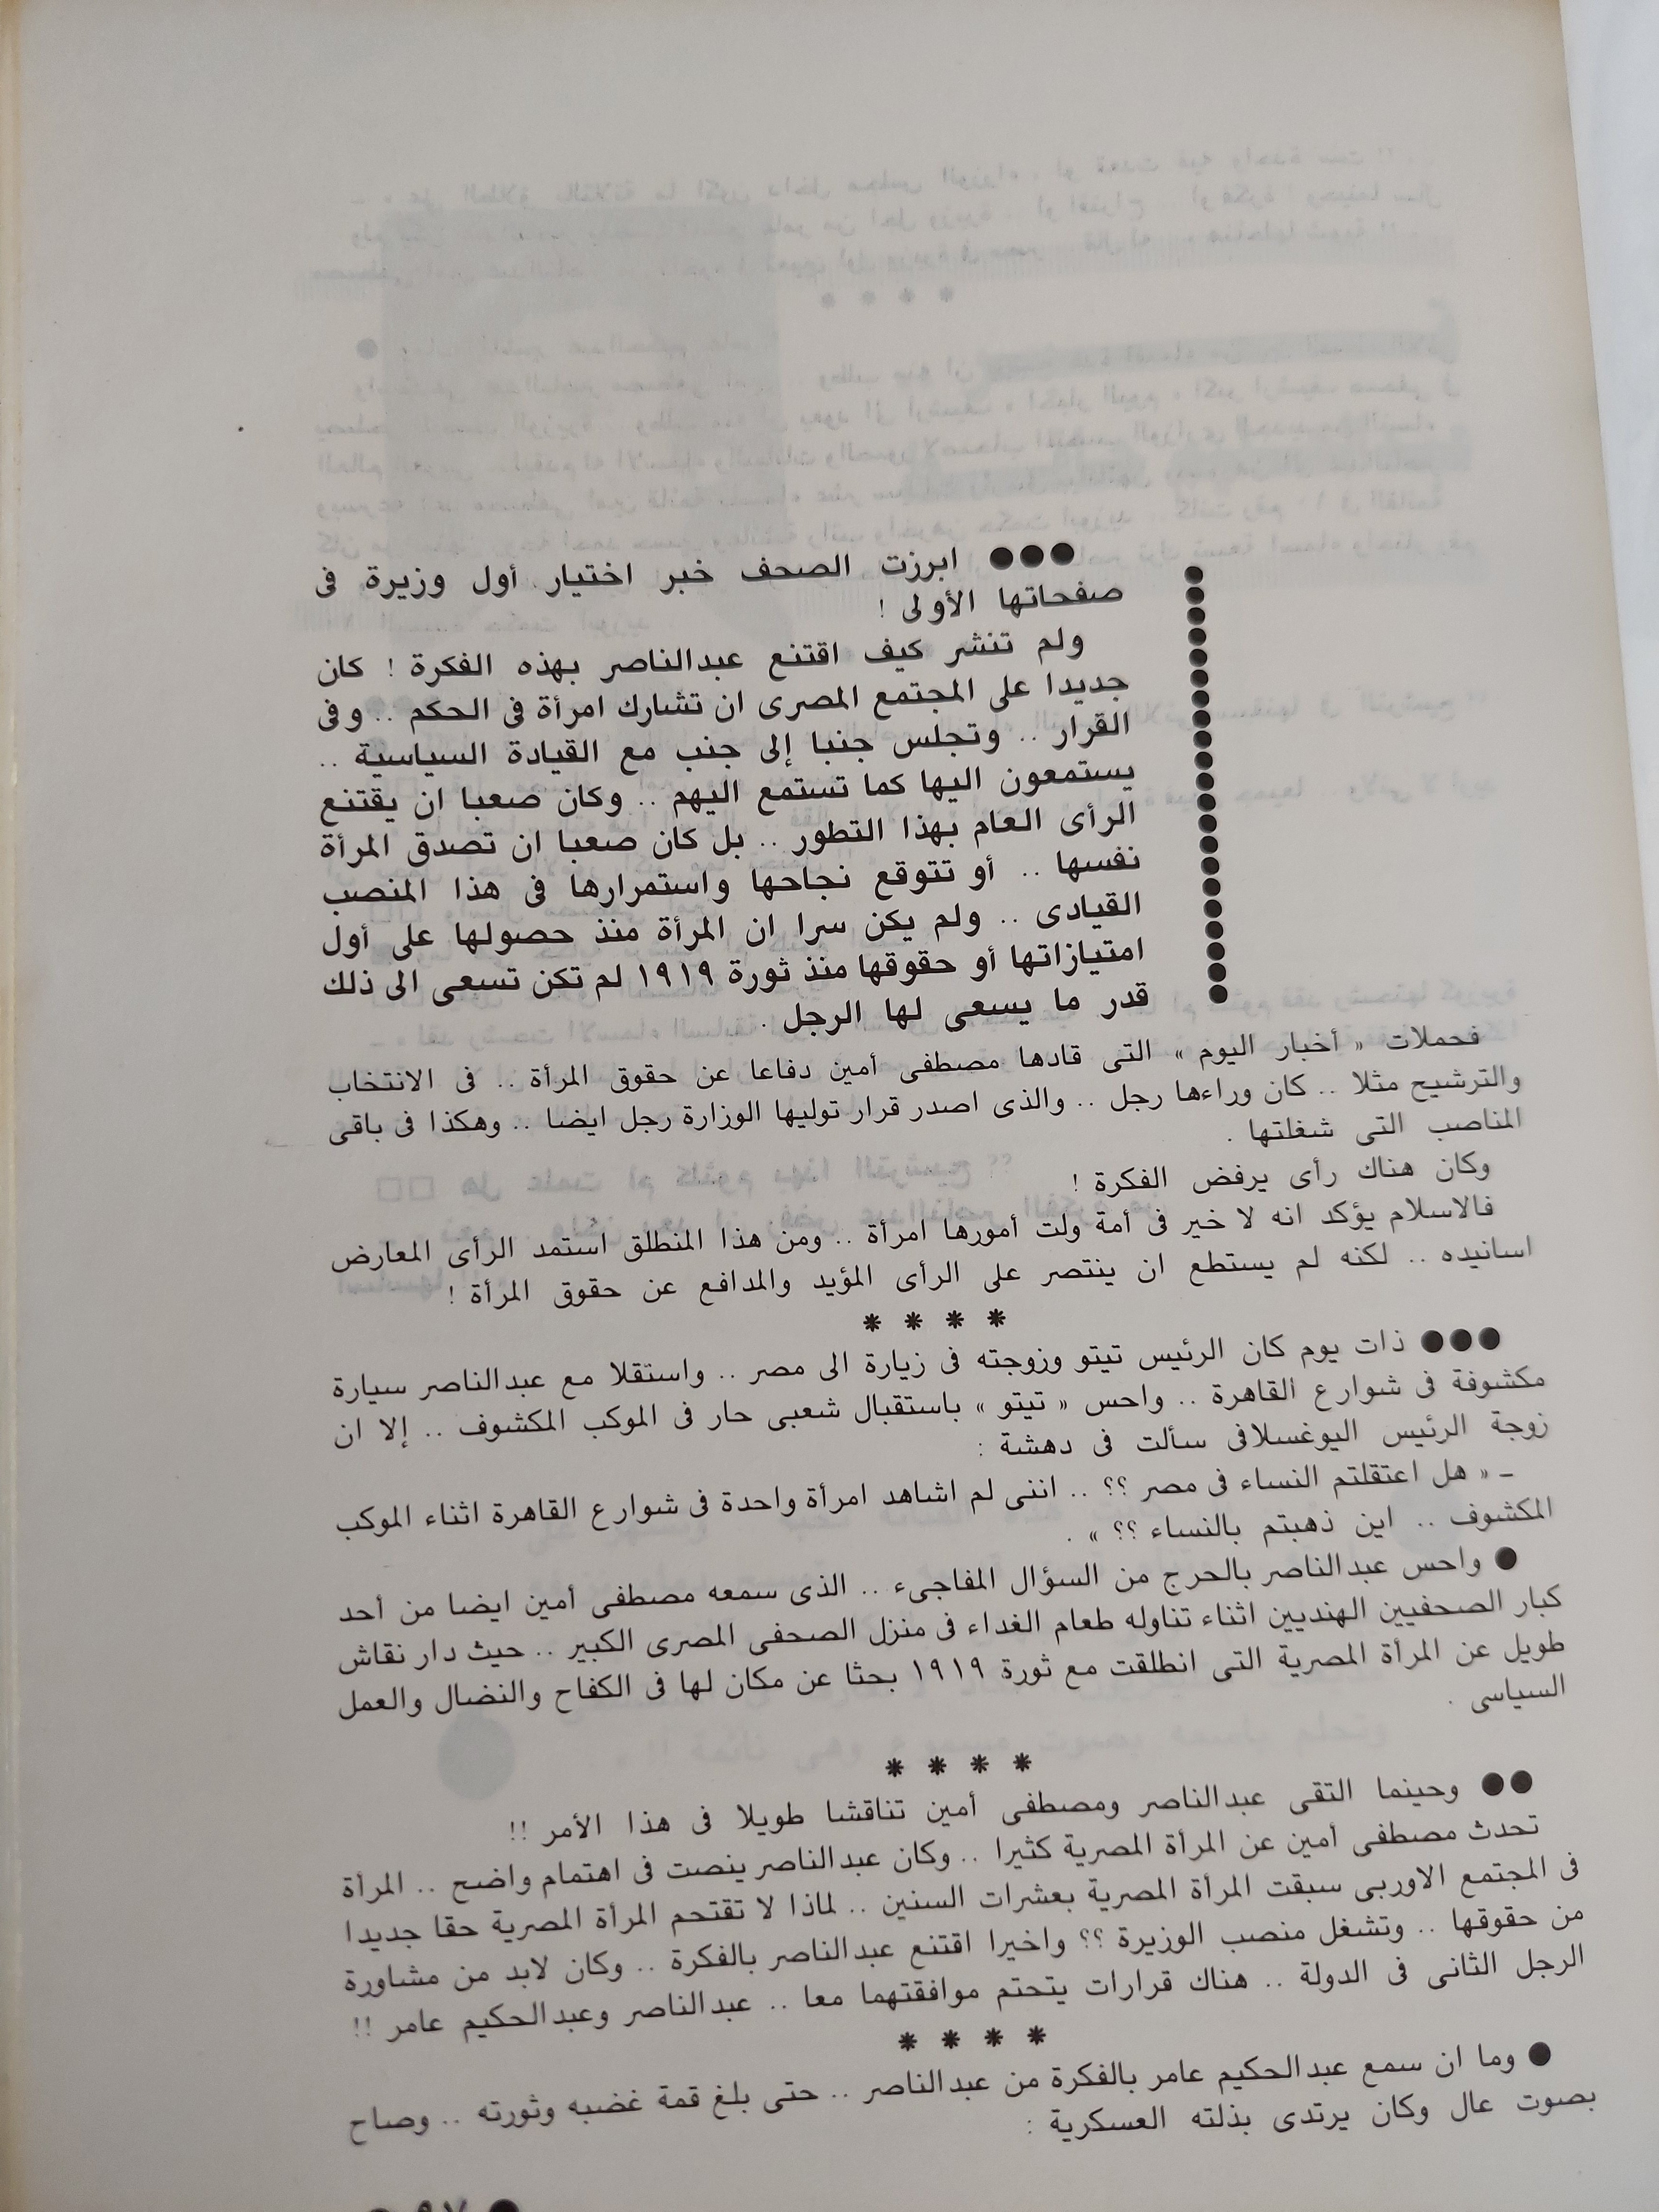 ●●● ابرزت الصحف خبر اختيار أول وزيرة فى
صفحاتها الأولى !
ولم تنشر كيف اقتنع عبدالناصر بهذه الفكرة ! كان
جديدا على المجتمع المصرى ان تشارك امرأة فى الحكم .. وفى
القرار .. وتجلس جنبا إلى جنب مع القيادة السياسية ..
يستمعون اليها كما تستمع اليهم .. وكان صعبا ان يقتنع
الرأى العام بهذا التطور .. بل كان صعبا ان تصدق المرأة
نفسها .. أو تتوقع نجاحها واستمرارها فى هذا المنصب
القيادى .. ولم يكن سرا ان المرأة منذ حصولها على أول
امتيازاتها أو حقوقها منذ ثورة ١٩١٩ لم تكن تسعى الى ذلك
قدر ما يسعى لها الرجل .
فحملات « أخبار اليوم » التى قادها مصطفى أمين دفاعا عن حقوق المرأة .. فى الانتخاب
والترشيح مثلا .. كان وراءها رجل .. والذى اصدر قرار توليها الوزارة رجل ايضا .. وهكذا فى باقى
المناصب التى شغلتها .
وكان هناك رأى يرفض الفكرة !
فالاسلام يؤكد انه لا خير فى أمة ولت أمورها امرأة .. ومن هذا المنطلق استمد الرأى المعارض
اسانيده .. لكنه لم يستطع ان ينتصر على الرأى المؤيد والمدافع عن حقوق المرأة !
* * * *
●●● ذات يوم كان الرئيس تيتو وزوجته فى زيارة الى مصر .. واستقلا مع عبدالناصر سيارة
مكشوفة فى شوارع القاهرة .. واحس « تيتو » باستقبال شعبى حار فى الموكب المكشوف .. إلا ان
زوجة الرئيس اليوغسلافى سألت فى دهشة :
ـ « هل اعتقلتم النساء فى مصر ؟؟ .. اننى لم اشاهد امرأة واحدة فى شوارع القاهرة اثناء الموكب
المكشوف .. اين ذهبتم بالنساء ؟؟ » .
● واحس عبدالناصر بالحرج من السؤال المفاجىء .. الذى سمعه مصطفى أمين ايضا من أحد
كبار الصحفيين الهنديين اثناء تناوله طعام الغداء فى منزل الصحفى المصرى الكبير .. حيث دار نقاش
طويل عن المرأة المصرية التى انطلقت مع ثورة ١٩١٩ بحثا عن مكان لها فى الكفاح والنضال والعمل
السياسى .
* * * *
●● وحينما التقى عبدالناصر ومصطفى أمين تناقشا طويلا فى هذا الأمر !!
تحدث مصطفى أمين عن المرأة المصرية كثيرا .. وكان عبدالناصر ينصت فى اهتمام واضح .. المرأة
فى المجتمع الاوربى سبقت المرأة المصرية بعشرات السنين .. لماذا لا تقتحم المرأة المصرية حقا جديدا
من حقوقها .. وتشغل منصب الوزيرة ؟؟ واخيرا اقتنع عبدالناصر بالفكرة .. وكان لابد من مشاورة
الرجل الثانى فى الدولة .. هناك قرارات يتحتم موافقتهما معا .. عبدالناصر وعبدالحكيم عامر !!
* * * *
● وما ان سمع عبدالحكيم عامر بالفكرة من عبدالناصر .. حتى بلغ قمة غضبه وثورته .. وصاح
بصوت عال وكان يرتدى بذلته العسكرية :
● ٩٧ ●